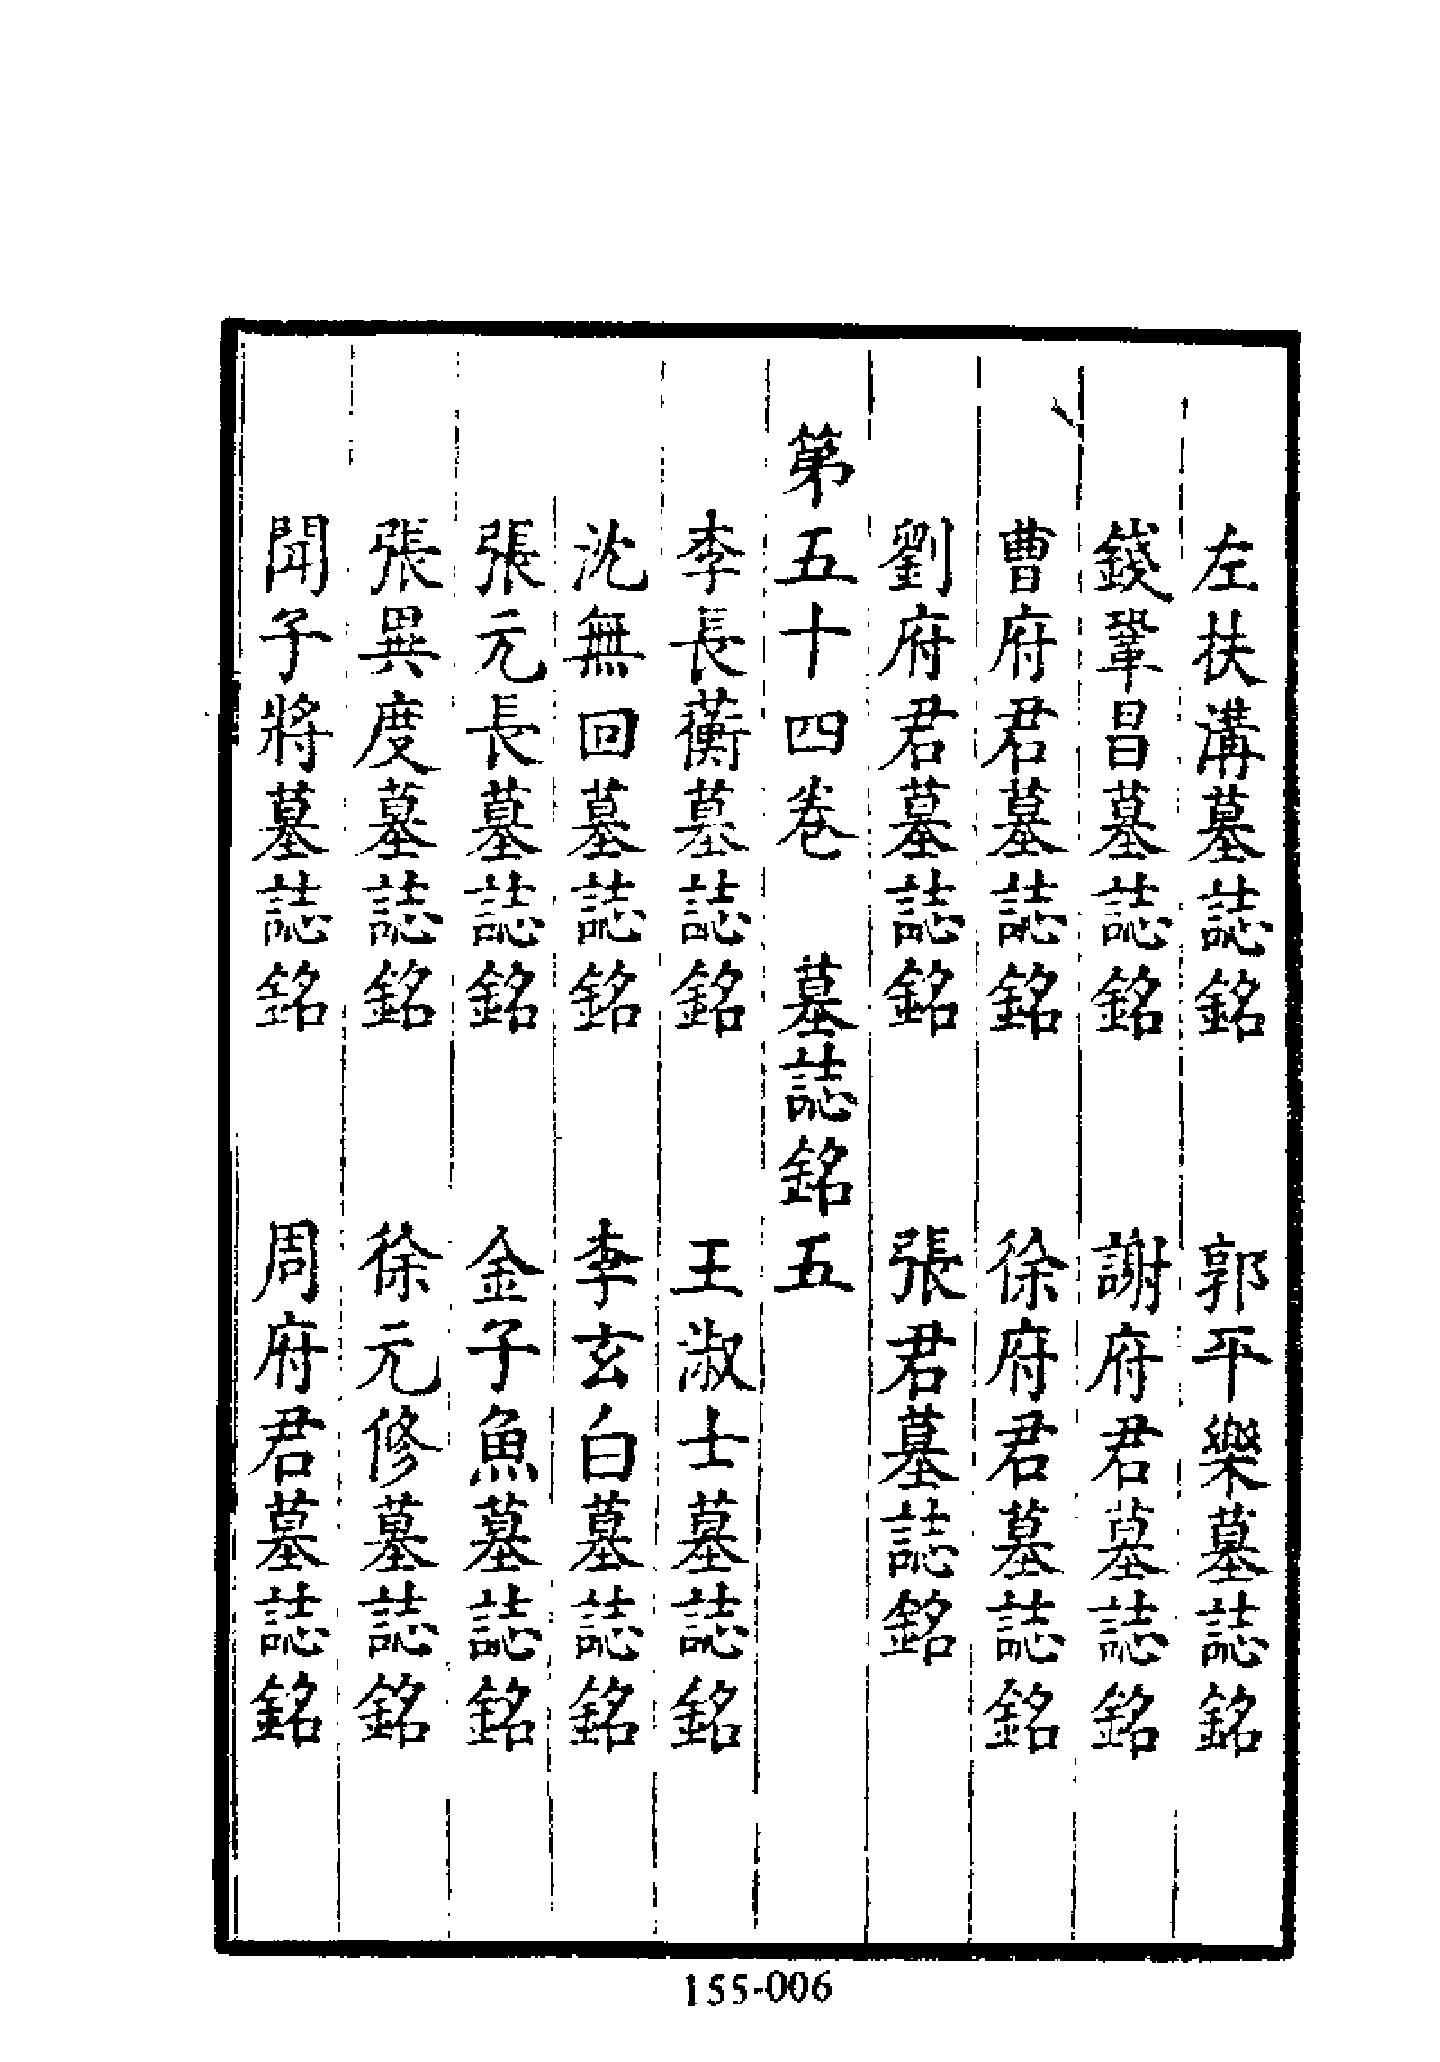 左扶溝墓誌銘　郭平樂墓誌銘
錢鞏昌墓誌銘　謝府君墓誌銘
曹府君墓誌銘　徐府君墓誌銘
劉府君墓誌銘　張君墓誌銘
第五十四卷　墓誌銘五
李長蘅墓誌銘　王淑士墓誌銘
沈無回墓誌銘　李玄白墓誌銘
張元長墓誌銘　金子魚墓誌銘
張異度墓誌銘　徐元修墓誌銘
聞子將墓誌銘　周府君墓誌銘
155-006